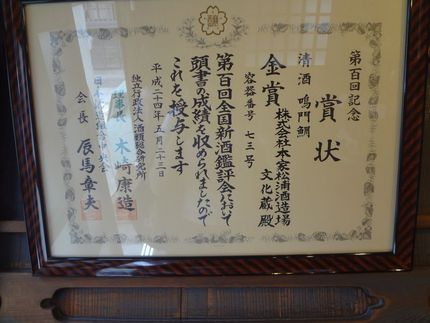 第百回記念
賞状
清酒 鳴門鯛
株式会社本家松浦酒造場
文化蔵殿
金賞
容器番号 七三号
第百回全国新酒鑑評会において
頭書の成績を収められましたので
これを授与します
平成二十四年五月二十三日
独立行政法人 酒類総合研究所
理事長 木崎康造
会長 辰馬章夫